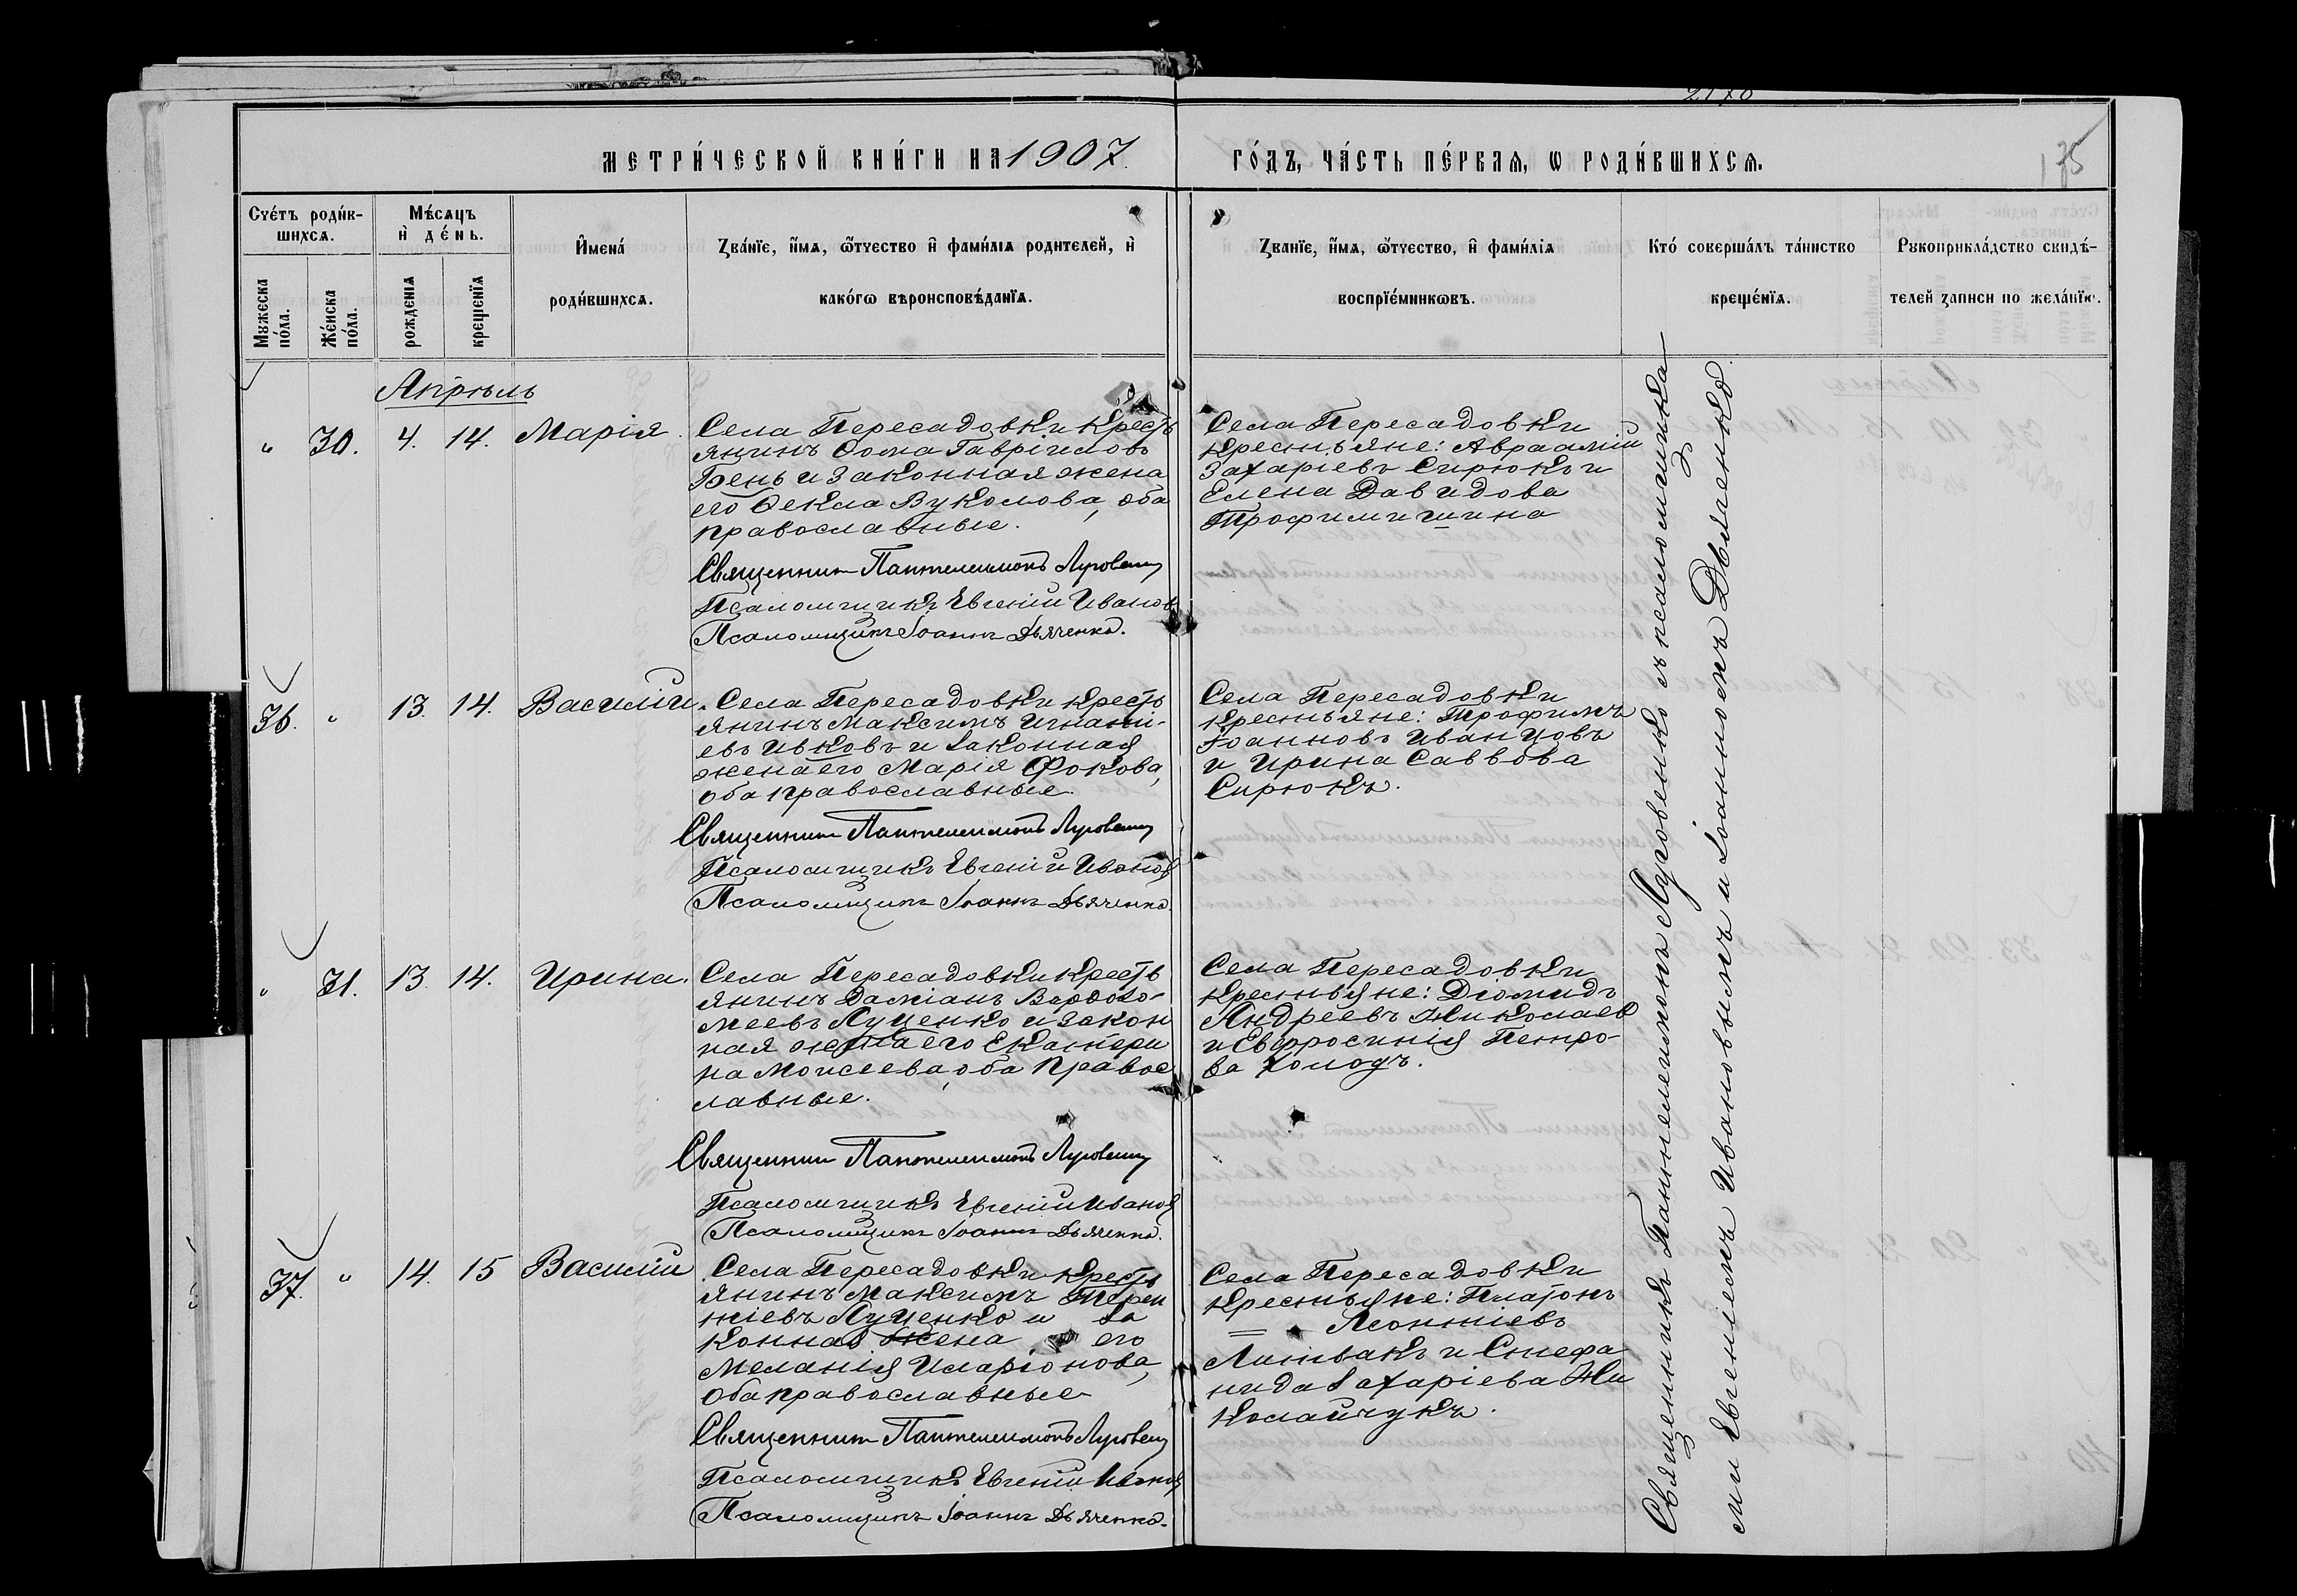 2170
МЕТРИ́ЧЕСКОЙ КНИ́ГИ НА 1907 ГО́ДЪ, ЧА́СТЬ ПЕ́РВАѦ, Ѡ РОДИ́ВШИХСѦ.
175
Сче́тъ роди́в-
шихсѧ.
Мꙋжеска по́ла.
Же́нска по́ла.
Мѣ́сѧцъ
и҆ де́нь.
рожденїѧ
крещенїѧ
И҆мена́
роди́вшихсѧ.
Зва́нїе, и҆́мѧ, ѻ҆́тчество и҆ фами́лїѧ родителей, и҆
како́гѡ вѣроисповѣ́данїѧ.
Зва́нїе, и҆́мѧ, ѻ҆́тчество, и҆ фами́лїѧ
воспрїе́мникѡвъ.
Кто́ соверша́лъ та́инство
креще́нїѧ.
Рꙋкоприкла́дство свидѣ́-
телей записи по жела́нїю.
Апрѣль
" 30. 4. 14. Марія.
Села Пересадовки кресть
янинъ Ѳома Гавріиловъ
Бень и законная жена
его Ѳекла Вуколова, оба
православные.
Священник Пантелеимонъ Луговенко
Псаломщикъ Евгеній Иванов
Псаломщикъ Іоаннъ Дьяченко.
Села Пересадовки
крестьяне: Авраамій
Захаріевъ Сирюкъ и
Елена Давидова
Трофимишина
36. " 13. 14. Василій.
Села Пересадовки кресть
янинъ Максимъ Игнаті-
евъ Ивковъ и законная
жена его Марія Фокова,
оба православные.
Священник Пантелеимонъ Луговенко
Псаломщикъ Евгеній Иванов
Псаломщикъ Іоаннъ Дьяченко.
Села Пересадовки
крестьяне: Трофимъ
Іоанновъ Иванцовъ
и Ирина Саввова
Сирюкъ.
" 31. 13. 14. Ирина.
Села Пересадовки кресть
янинъ Даміанъ Варѳоло-
меевъ Луценко и закон
ная жена его Екатери
на Моисеева, оба правос
лавные.
Священник Пантелеимонъ Луговенко
Псаломщикъ Евгеній Иванов
Псаломщикъ Іоаннъ Дьяченко.
Села Пересадовки
крестьяне: Діомидъ
Андреевъ Николаев
и Евфросинія Петро-
ва Холодъ.
37. " 14. 15 Василій
Села Пересадовки кресть
янинъ Максимъ Терен
тіевъ Луценко и за
конная жена его
Меланія Иларіонова,
оба православные
Священник Пантелеимонъ Луговенко
Псаломщикъ Евгеній Иванов
Псаломщикъ Іоаннъ Дьяченко.
Села Пересадовки
крестьяне: Платонъ
Леонтіевъ
Литвакъ и Стефа
нида Захаріева Ни
колайчукъ.
Священникъ Пантелеимонъ Луговенко съ псаломщика
ми Евгеніемъ Ивановымъ и Іоанномъ Дьяченко.